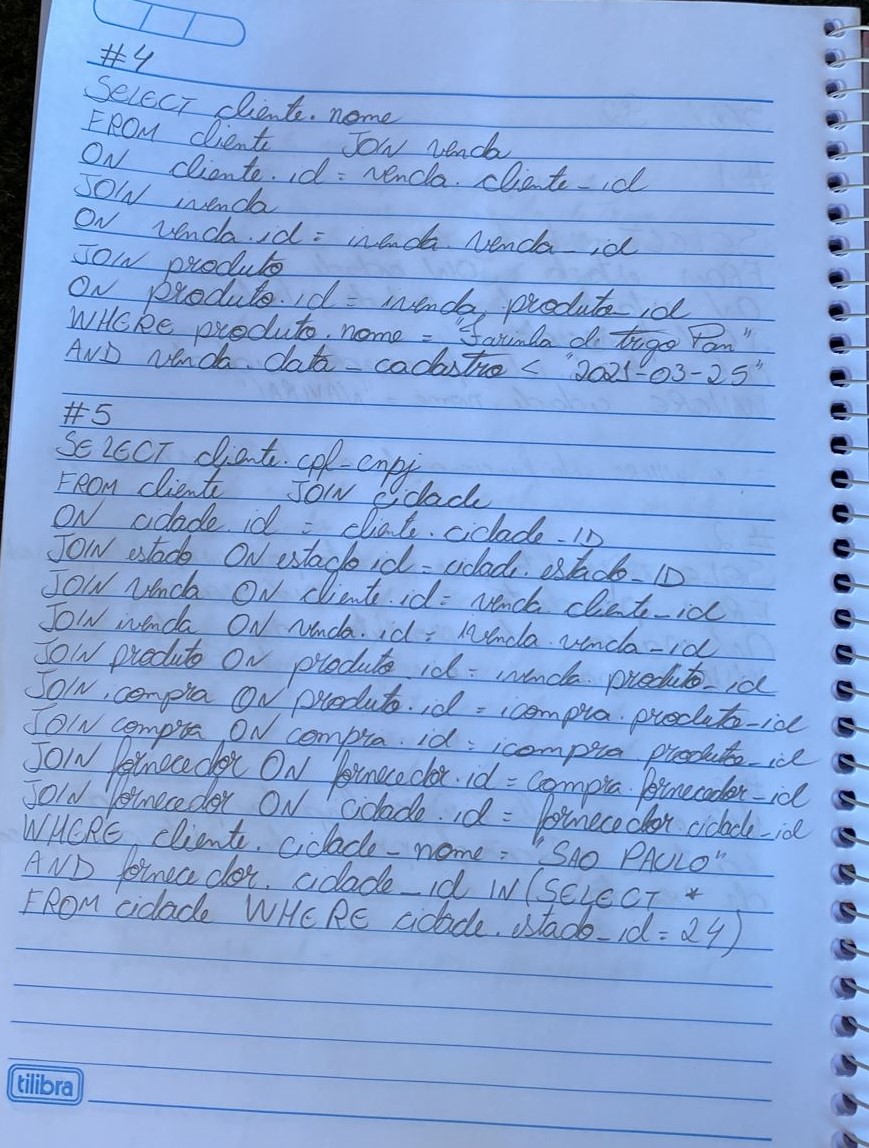 #4
SELECT cliente.nome
FROM cliente JOIN venda
ON cliente.id = venda.cliente_id
JOIN ivenda
ON venda.id = ivenda.venda_id
JOIN produto
ON produto.id = ivenda.produto_id
WHERE produto.nome = "Farinha d. trigo Pan"
AND venda.data_cadastro < "2021-03-25"
#5
SELECT cliente.cpf_cnpj
FROM cliente JOIN cidade
ON cidade.id = cliente.cidade_ID
JOIN estado ON estado.id = cidade.estado_ID
JOIN venda ON cliente.id = venda.cliente_id
JOIN ivenda ON venda.id = ivenda.venda_id
JOIN produto ON produto.id = ivenda.produto_id
JOIN icompra ON produto.id = icompra.produto_id
JOIN compra ON compra.id = icompra.produto_id
JOIN fornecedor ON fornecedor.id = compra.fornecedor_id
JOIN fornecedor ON cidade.id = fornecedor.cidade_id
WHERE cliente.cidade_nome = "SAO PAULO"
AND fornecedor.cidade_id IN (SELECT *
FROM cidade WHERE cidade.estado_id = 24)
tilibra